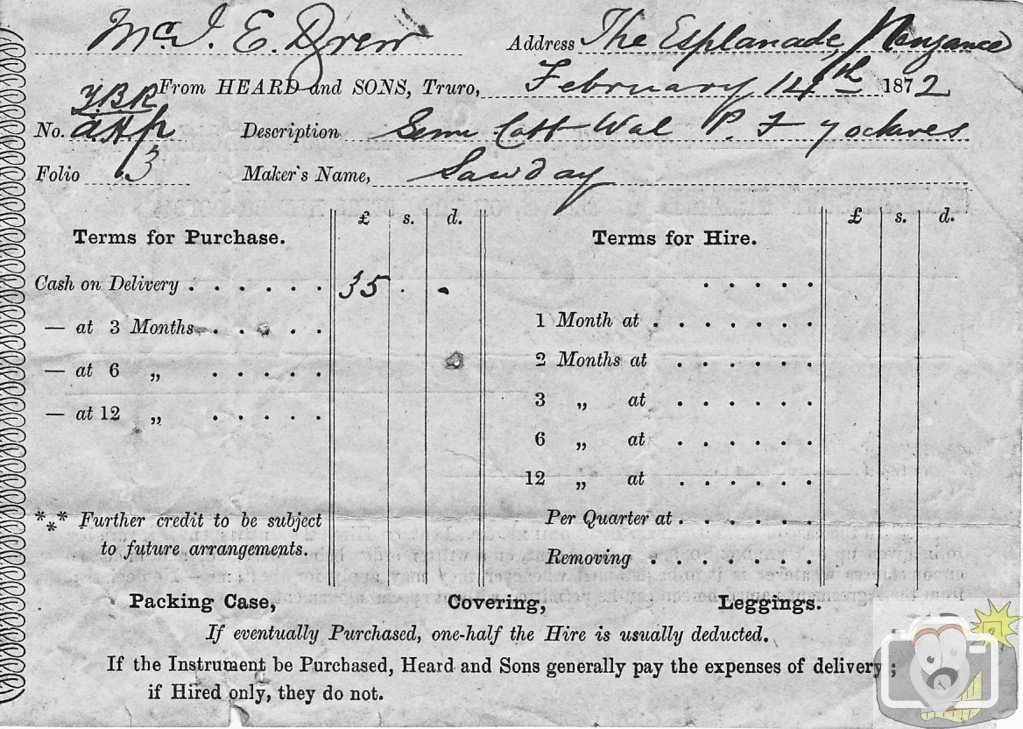 Mr. J. E. Drew Address The Esplanade, Penzance
From HEARD and SONS, Truro, February 14th 1872
No. Description Semi Cott Wal P. F 7 octaves
Folio 3 Maker's Name, Sawday
£ s. d. £ s. d.
Terms for Purchase. Terms for Hire.
Cash on Delivery . . . . . . 35 . . . . . . .
— at 3 Months . . . . . 1 Month at . . . . . . .
— at 6 „ . . . . . 2 Months at . . . . . .
— at 12 „ . . . . . 3 „ at . . . . . .
6 „ at . . . . . .
12 „ at . . . . . .
*** Further credit to be subject Per Quarter at . . . . . .
to future arrangements. Removing . . . . . . .
Packing Case, Covering, Leggings.
If eventually Purchased, one-half the Hire is usually deducted.
If the Instrument be Purchased, Heard and Sons generally pay the expenses of delivery;
if Hired only, they do not.